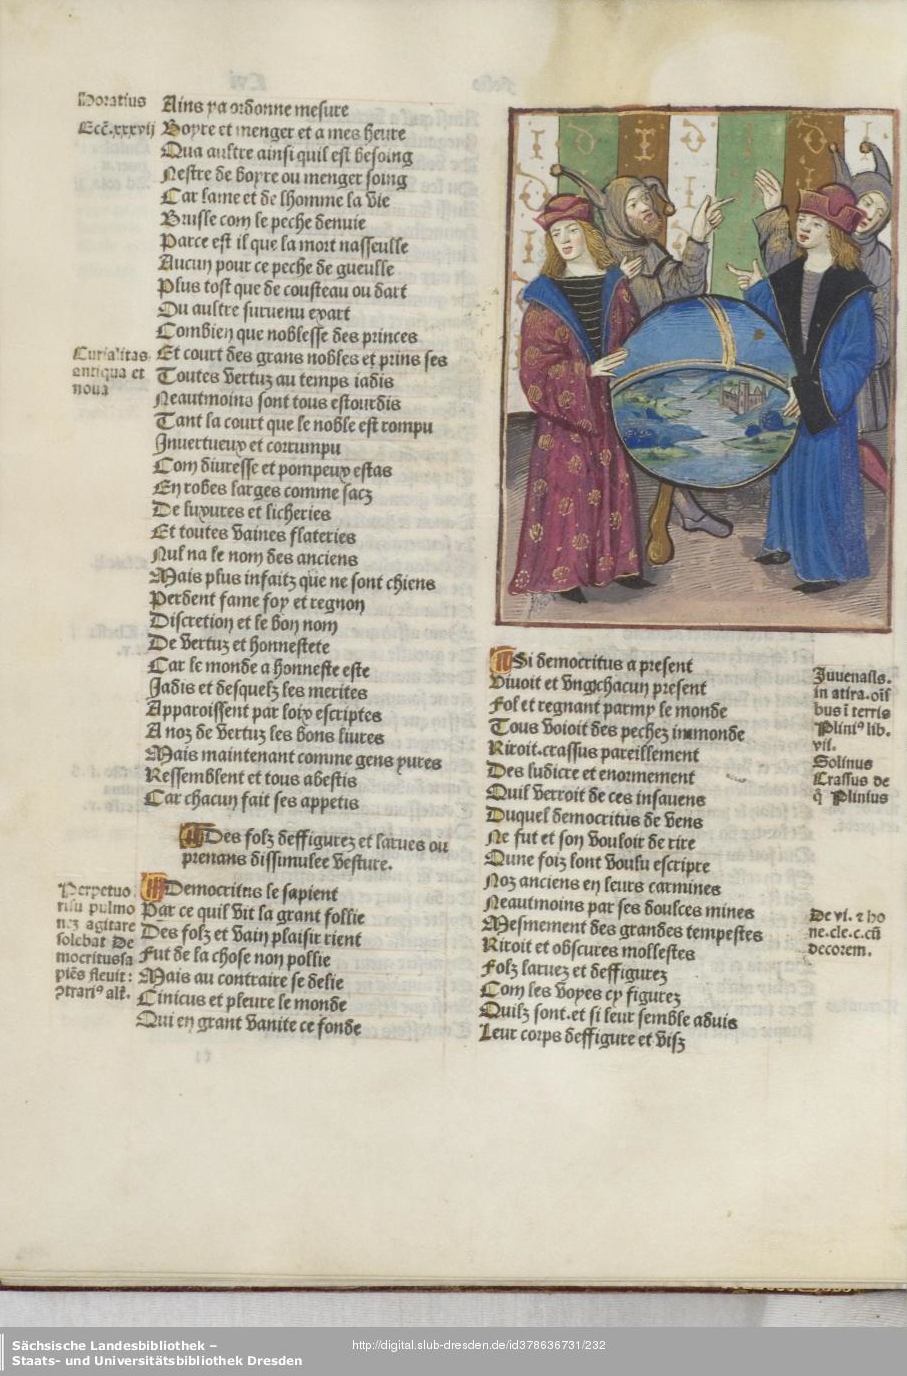 Horatius
Ains y a ordonne mesure
Ecc̄.xxxvij
Boyre et menger et a mes heure
Qua aultre ainsi quil est besoing
Nestre de boyre ou menger soing
Car lame et de lhomme la vie
Brusle com le peche denuie
Parce est il que la mort nasseulle
Aucun pour ce peche de gueulle
Plus tost que de cousteau ou dart
Ou aultre suruenu epart
Combien que noblesse des princes
Curialitas
antiqua et
noua
Et court des grans nobles et prins ses
Toutes vertuz au temps iadis
Neautmoins sont tous estourdis
Tant la court que le noble est rompu
Inuertueux et corrumpu
Com diuresse et pompeux estas
En robes larges comme sacz
De luxures et licheries
Et toutes vaines flateries
Nul na le nom des anciens
Mais plus infaitz que ne sont chiens
Perdent fame foy et regnon
Discretion et le bon nom
De vertuz et honnestete
Car le monde a honneste este
Jadis et desquelz les merites
Apparoissent par loix escriptes
A noz de vertuz les bons liures
Mais maintenant comme gens yures
Ressemblent et tous abestis
Car chacun fait ses appetis
Des folz deffigurez et larues ou
prenans dissimulee vesture.
Perpetuo
risu pulmo
nez agitare
solebat De
mocritussa
piēs fleuit:
ↄtrariꝰ alt̄.
Democritus le sapient
Par ce quil vit la grant follie
Des folz et vain plaisir rient
Fut de la chose non pollie
Mais au contraire se delie
Cinicus et pleure le monde
Qui en grant vanite ce fonde
Si democritus a present
Viuoit et vng chacun present
Fol et regnant parmy le monde
Tous voioit des pechez immonde
Riroit.crassus pareillement
Des ludicre et enormement
Quil verroit de ces insauens
Duquel democritus de vens
Ne fut et son vouloir de rire
Qune foiz lont voulu escripre
Noz anciens en leurs carmines
Neautmoins par ses doulces mines
Mesmement des grandes tempestes
Riroit et obscures mollestes
Folz laruez et deffigurez
Com les voyes cy figurez
Quilz sont.et si leur semble aduis
Leur corps deffigure et visz
Juuenalis.
in atira.oīs
bus ī terris
Pliniꝰ lib.
vii.
Solinus
Crassus de
q̄ Plinius
De vi. ⁊ ho
ne.cle.c.cū
decorem.
Sächsische Landesbibliothek –
Staats- und Universitätsbibliothek Dresden
http://digital.slub-dresden.de/id378636731/232